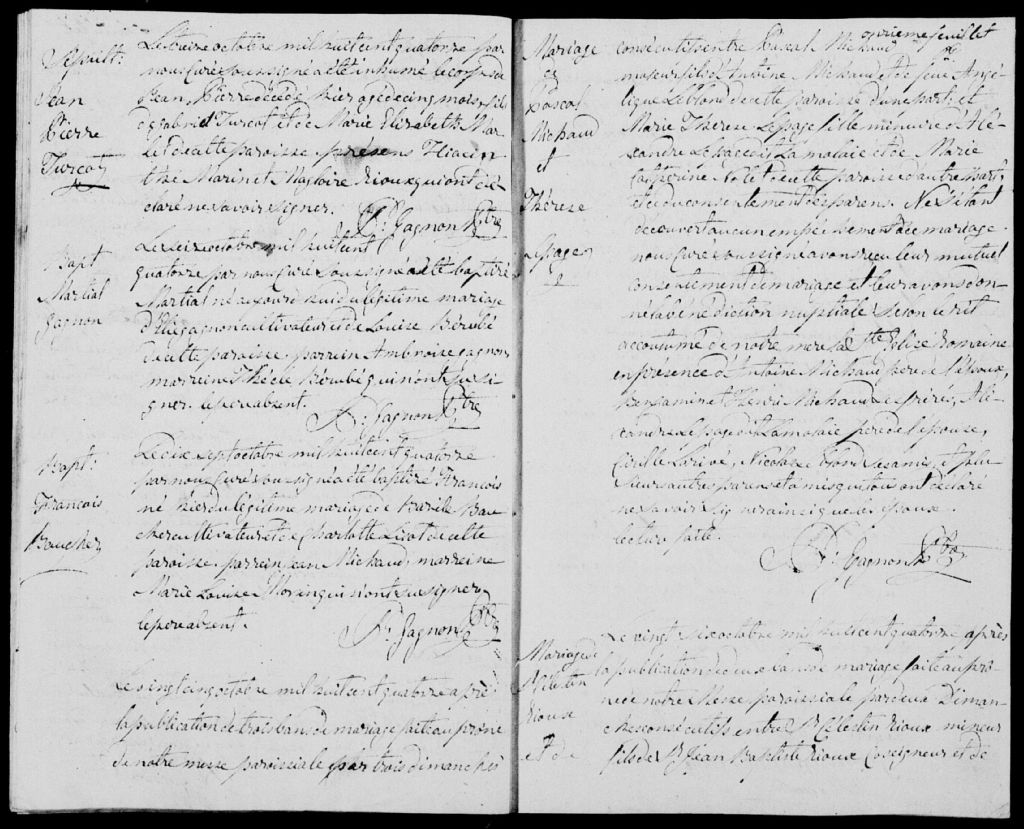 Sepult:
Jean
Pierre
Turcot
Le treize octobre mil huit cent quatorze par
nous curé soussigné a été inhumé le corps de
Jean Pierre décédé hier agé de cinq mois fils
de Gabriel Turcot et de Marie Elizabeth Mar
de cette paroisse. présens Hiacin
the Marin et Magloire Rioux qui ont dé
claré ne savoir signer.
P. Gagnon Ptre
Bapt
Martial
Gagnon
Le seize octobre mil huit cent
quatorze par nous curé soussigné a été baptisé
Martial né aujourd'huid du légitime mariage
d' Gagnon cultivateur et de Louise Bérubé
de cette paroisse. parrein Ambroise Gagnon
marreine Thècle Bérubé qui n'ont su si
gner. le pere absent.
P. Gagnon Ptre
Bapt:
François
Boucher
Le dix sept octobre mil huit cent quatorze
par nous curé soussigné a été baptisé François
né hier du légitime mariage de Bazile Bou
cher cultivateur et de Charlotte de cette
paroisse. parrein Jean Michaud, marreine
Marie Louise Morin qui n'ont su signer
le pere absent.
P. Gagnon Ptre
Le vingt cinq octobre mil huit cent quatorze après
la publication de trois bans de mariage faite au prône
de notre messe paroissiale par trois dimanches
onzieme feuillet
Mariage
de
Pascal
Michaud
et
Thérese
Lepage
consécutifs entre Pascal Michaud
majeur fils d'Antoine Michaud et de feue Angé
lique Leblond de cette paroisse d'une part; et
Marie Thérese Lepage fille mineure d'Ale
xandre Lepage dit Lamolaie et de Marie
Catherine Nolet de cette paroisse d'autre part,
et du consentement des parens. Ne s'étant
découvert aucun empéchement de mariage.
nous curé soussigné avons reçu leur mutuel
consentement de mariage et leur avons don
né la bénédiction nuptiale selon le rit
accoutumé de notre mere la Ste Eglise Romaine
en présence d'Antoine Michaud pere de l'époux,
Benjamin et Henri Michaud ses freres, Ale
xandre Lepage dit Lamolaie pere de l'épouse,
Cirille Larivé, Nicolas Leblond ses amis, et plu
sieurs autres parens et amis qui tous ont déclaré
ne savoir signer ainsi que les époux.
lecture faite.
P. Gagnon Ptre
Mariage de
Sr Celestin
Rioux
et de
Le vingt six octobre mil huit cent quatorze après
la publication de deux bans de mariage faite au prô
ne de notre Messe paroissiale par deux Diman
ches consécutifs entre Sr Celestin Rioux mineur
fils de Sr Jean Baptiste Rioux Coseigneur et de